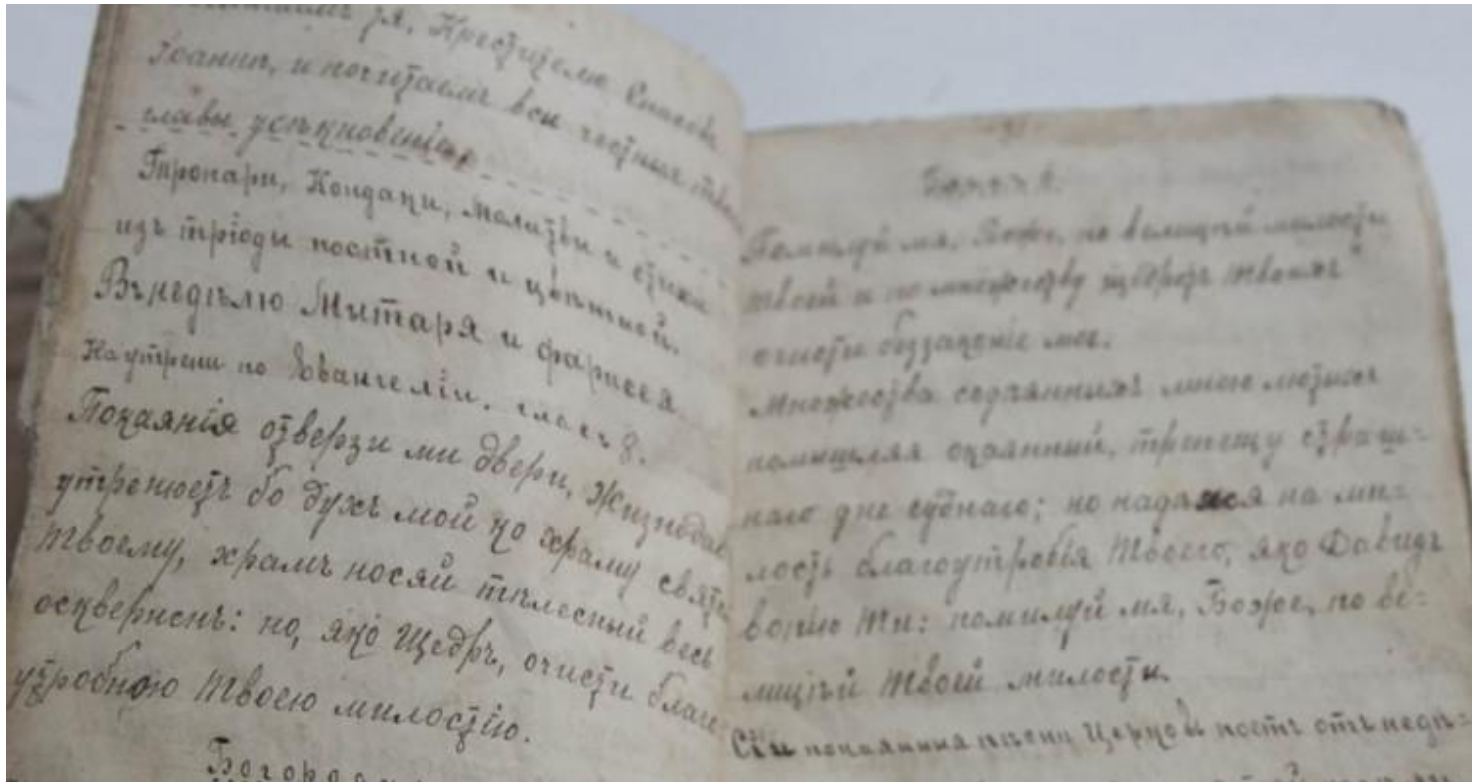 Крестителю Спасовъ
Іоанне, и почитаемъ вси честныя твоея
главы усѣкновеніе.
Тропари, Кондаки, Молитвы и стихи
изъ тріоды постной и цвѣтной.
Въ недѣлю Мытаря и фарисея
На утрени по Евангеліи. гласъ 8.
Покаянія отверзи ми двери, Жизнодав
утренюетъ бо духъ мой ко храму свято
твоему, храмъ носяй тѣлесный весь
оскверненъ: но, яко Щедръ, очисти благо
утробною твоею милостію.
Помилуй мя, Боже, по велицѣй милости
твоей и по множеству щедротъ твоихъ
очисти беззаконіе мое.
Множества содѣянныхъ мною лютыхъ
помышляя окаянный, трепещу страш=
наго дне суднаго; но надѣяся на ми=
лость благоутробія Твоего, яко Давидъ
вопію Ти: помилуй мя, Боже, по ве=
лицѣй Твоей милости.
Сіи покаянныя пѣсни Церковь поетъ отъ недѣ=